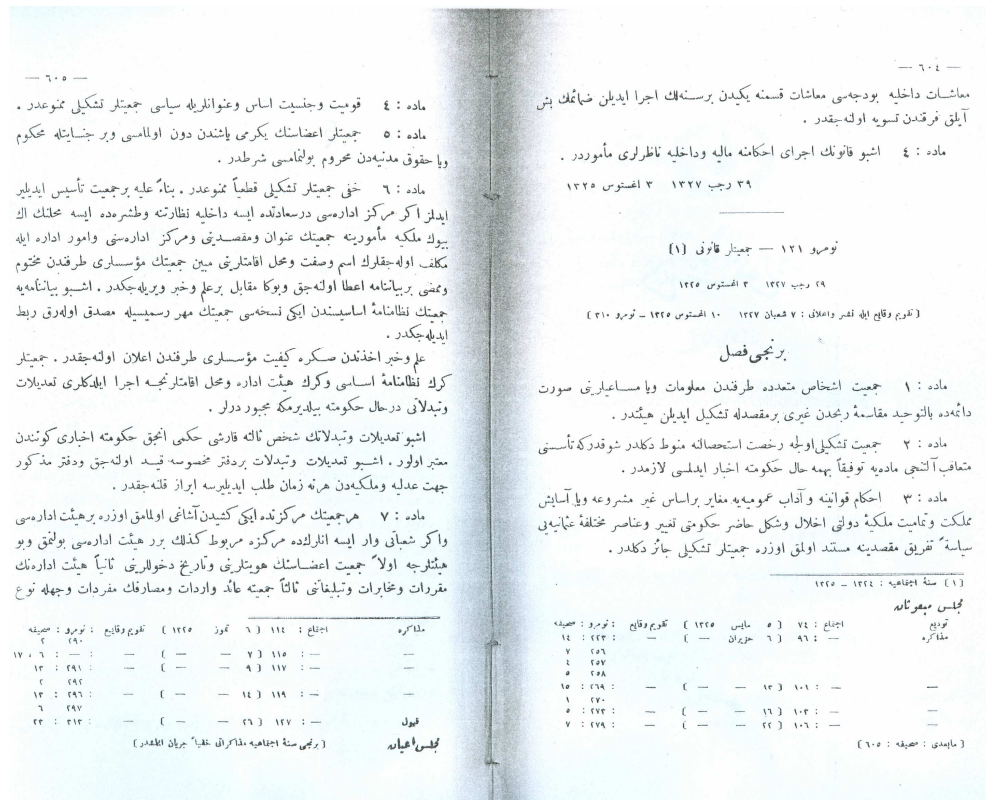 — ٦٠٤ —
معاشات داخليه بودجه‌سى معاشات قسمنه يكيدن برسنه‌لك اجرا ايديلن ضمائمك بش
آيلق فرقندن تسويه اولنه‌جقدر .
ماده : ٤ اشبو قانونك اجراى احكامنه ماليه وداخليه ناظرلرى مأموردر .
٢٩ رجب ١٣٢٧ ٣ اغستوس ١٣٢٥
نومرو ١٢١ — جمعيتلر قانونى (١)
٢٩ رجب ١٣٢٧ ٣ اغستوس ١٣٢٥
( تقويم وقايع ايله نشر واعلانى : ٧ شعبان ١٣٢٧ ١٠ اغستوس ١٣٢٥ ـ نومرو ٣١٠ )
برنجى فصل
ماده : ١ جمعيت اشخاص متعدده طرفندن معلومات ويا مساعيلرينى صورت
دائمه‌ده بالتوحيد مقاسمهٔ ربحدن غيرى بر مقصدله تشكيل ايديلن هيئتدر .
ماده : ٢ جمعيت تشكيلى اولجه رخصت استحصالنه منوط دكلدر شوقدركه تأسيسنى
متعاقب آلتنجى ماده‌يه توفيقاً بهمه حال حكومته اخبار ايدلمسى لازمدر .
ماده : ٣ احكام قوانينه و آداب عموميه‌يه مغاير براساس غير مشروعه ويا آسايش
مملكت وتماميت ملكيهٔ دولتى اخلال وشكل حاضر حكومتى تغيير وعناصر مختلفهٔ عثمانيه‌يى
سياسةً تفريق مقصدينه مستند اولمق اوزره جمعيتلر تشكيلى جائز دكلدر .
(١) سنهٔ اجتماعيه : ١٣٢٤ — ١٣٢٥
مجلس مبعوثان
توديع اجتماع : ٧٤ ( ٥ مايس ١٣٢٥ ) تقويم وقايع : نومرو : صحيفه
مذاكره — : ٩٦ ( ٦ حزيران — ) — : ٢٢٣ : ١٤
٢٥٦ ٧
٢٥٧ ٤
٢٥٨ ٥
— — : ١٠١ ( ١٣ — — ) — : ٢٦٩ : ١٥
٢٧٠ ١
— — : ١٠٣ ( ١٦ — — ) — : ٢٧٣ : ٥
— — : ١٠٦ ( ٢٢ — — ) — : ٢٧٩ : ٧
( مابعدى : صحيفه : ٦٠٥ )
— ٦٠٥ —
ماده : ٤ قوميت وجنسيت اساس وعنوانلريله سياسى جمعيتلر تشكيلى ممنوعدر .
ماده : ٥ جمعيتلر اعضاسنك يكرمى ياشندن دون اولمامسى وبر جنايتله محكوم
ويا حقوق مدنيه‌دن محروم بولنمامسى شرطدر .
ماده : ٦ خفى جمعيتلر تشكيلى قطعياً ممنوعدر . بناءً عليه برجمعيت تأسيس ايديلير
ايدلمز اكر مركز اداره‌سى درسعادتده ايسه داخليه نظارتنه وطشره‌ده ايسه محلنك اك
بيوك ملكيه مأمورينه جمعيتك عنوان ومقصدينى ومركز اداره‌سنى وامور اداره ايله
مكلف اوله‌جقلرك اسم وصفت ومحل اقامتلرينى مبين جمعيتك مؤسسلرى طرفندن مختوم
وممضى بربياننامه اعطا اولنه‌جق وبوكا مقابل برعلم وخبر ويريله‌جكدر . اشبو بياننامه‌يه
جمعيتك نظامنامهٔ اساسيسندن ايكى نسخه‌سى جمعيتك مهر رسميسيله مصدق اوله‌رق ربط
ايديله‌جكدر .
علم وخبر اخذندن صكره كيفيت مؤسسلرى طرفندن اعلان اولنه‌جقدر . جمعيتلر
كرك نظامنامهٔ اساسى وكرك هيئت اداره ومحل اقامتلرنجه اجرا ايلدكلرى تعديلات
وتبدلاتى درحال حكومته بيلديرمكه مجبور درلر .
اشبو تعديلات وتبدلاتك شخص ثالثه قارشى حكمى انجق حكومته اخبارى كونندن
معتبر اولور . اشبو تعديلات وتبدلات بردفتر مخصوصه قيد اولنه‌جق ودفتر مذكور
جهت عدليه وملكيه‌دن هرنه زمان طلب ايديليرسه ابراز قلنه‌جقدر .
ماده : ٧ هرجمعيتك مركزنده ايكى كشيدن آشاغى اولمامق اوزره برهيئت اداره‌سى
واكر شعباتى وار ايسه انلرك‌ده مركزه مربوط كذلك برر هيئت اداره‌سى بولنمق وبو
هيئتلرجه اولاً جمعيت اعضاسنك هويتلرينى وتاريخ دخوللرينى ثانياً هيئت اداره‌نك
مقررات ومخابرات وتبليغاتنى ثالثاً جمعيته عائد واردات ومصارفك مفردات وجهله نوع
مذاكره اجتماع : ١١٤ ( ٦ تموز ١٣٢٥ ) تقويم وقايع : نومرو : صحيفه
٢٩٠ ٢
— — : ١١٥ ( ٧ — — ) — : — : ٦ ، ١٧
— — : ١١٧ ( ٩ — — ) — : ٢٩١ : ١٣
٢٩٢ ٢
— — : ١١٩ ( ١٤ — — ) — : ٢٩٦ : ١٣
٢٩٧ ٦
قبول — : ١٢٧ ( ٢٦ — — ) — : ٣١٣ : ٢٣
مجلس اعيان ( برنجى سنهٔ اجتماعيه مذاكراتى خفياً جريان ايتمشدر )